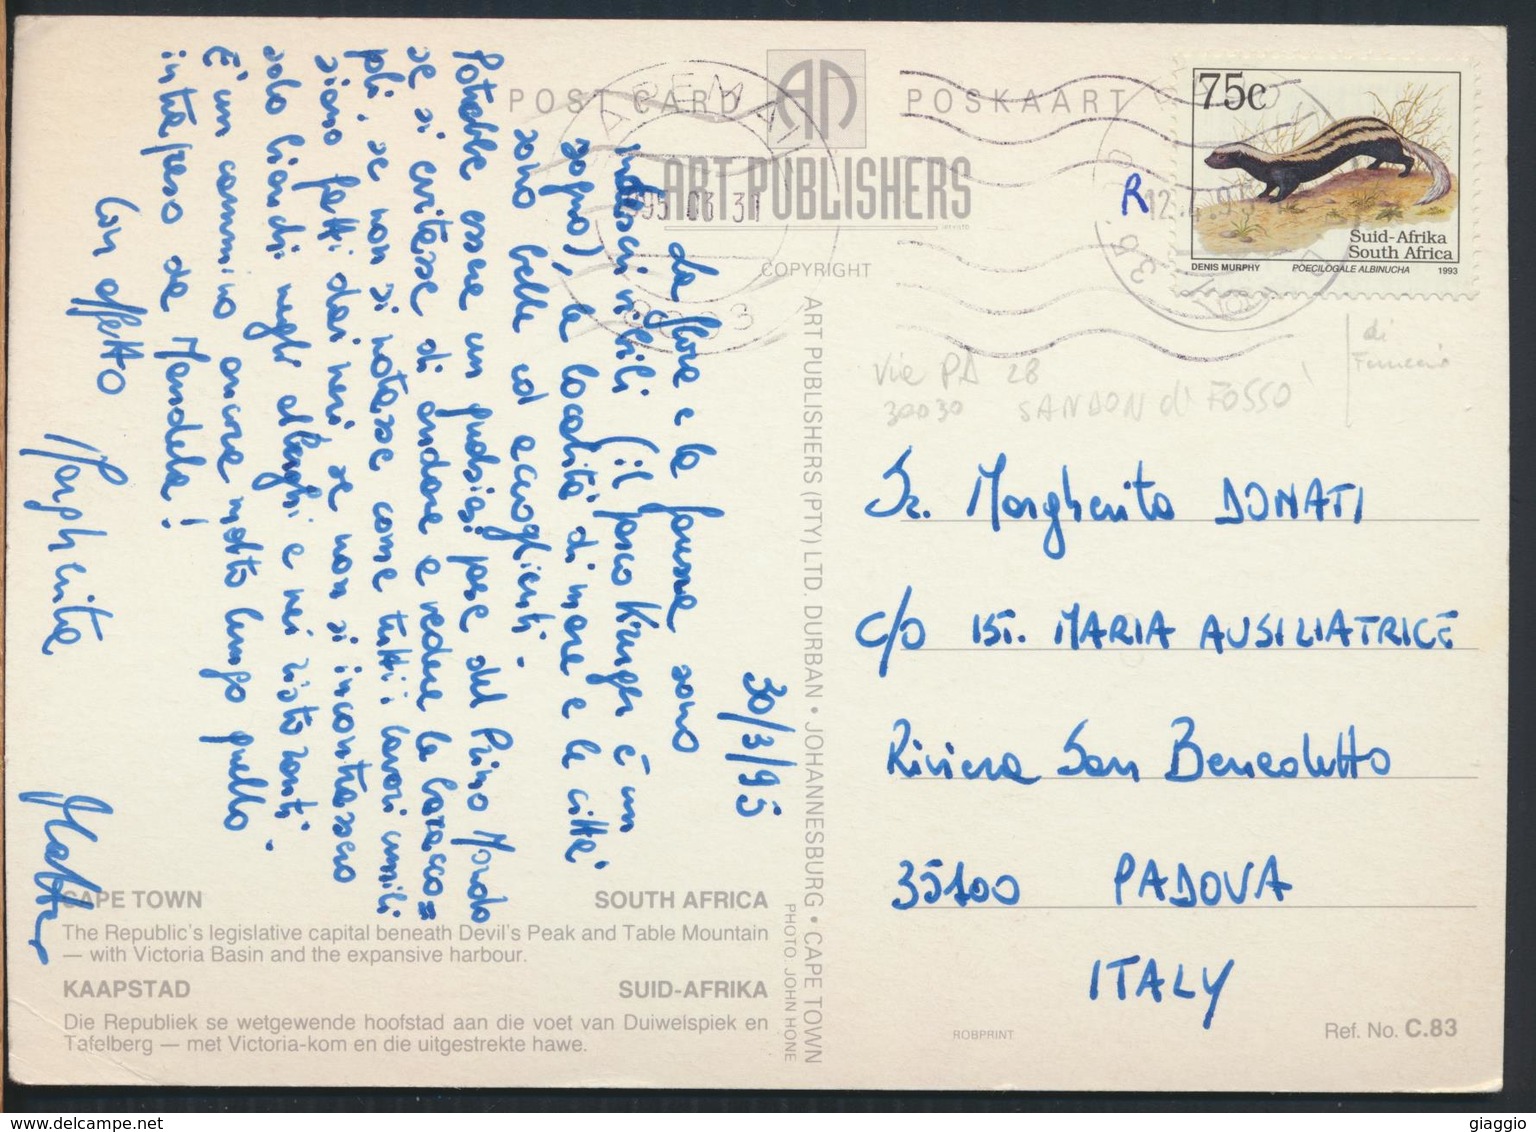 POST CARD
POSKAART
ART PUBLISHERS
COPYRIGHT
ART PUBLISHERS (PTY) LTD. DURBAN • JOHANNESBURG • CAPE TOWN
PHOTO. JOHN HONE
75c
Suid-Afrika
South Africa
DENIS MURPHY POECILOGALE ALBINUCHA 1993
R
1995 03 30
8003
30/3/95
La flora e la fauna sono
indescrivibili (il parco Kruger è un
sogno), le località di mare e le città
sono belle ed accoglienti.
Potrebbe essere un qualsiasi paese del Primo Mondo
se si evitasse di andare a vedere le baracco=
poli, se non si notasse come tutti i lavori umili
siano fatti dai neri, se non si incontrassero
solo bianchi negli alberghi e nei ristoranti.
È un cammino ancora molto lungo quello
intrapreso da Mandela!
Con affetto
Margherita
CAPE TOWN SOUTH AFRICA
The Republic's legislative capital beneath Devil's Peak and Table Mountain
— with Victoria Basin and the expansive harbour.
KAAPSTAD SUID-AFRIKA
Die Republiek se wetgewende hoofstad aan die voet van Duiwelspiek en
Tafelberg — met Victoria-kom en die uitgestrekte hawe.
Via PD 28
30030 SANDON di FOSSO'
di
Sr. Margherita DONATI
c/o IST. MARIA AUSILIATRICE
Riviera San Benedetto
35100 PADOVA
ITALY
ROBPRINT
Ref. No. C.83
delcampe.net
giaggio